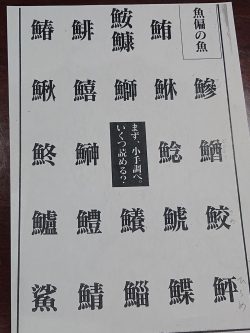 魚偏の魚
鮪
鮟鱇
鯡
鰆
鰺
鰤
鱚
鰍
鯰
鮗
まず、小手調べ。
いくつ読める?
鮫
鯱
鱶
鱧
鱸
鮃
鰈
鯔
鯖
鯊